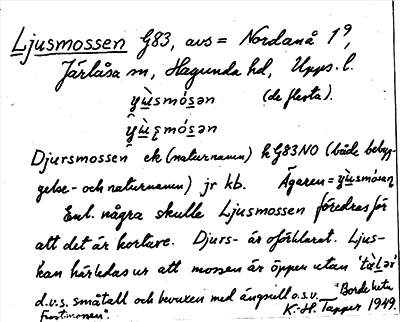 Ljusmossen G83, avs = Nordanå 1⁹,
Järlåsa sn, Hagunda hd, Upps. l.
y̑ùsmósən (de flesta).
y̑ùʂmósən
Djursmossen ek (naturnamn) k G83NO (både bebyg-
gelse- och naturnamn) jr kb. Ägaren = y̑ùsmósən
Enl. några skulle Ljusmossen föredras för
att det är kortare. Djurs- är oförklarat. Ljus-
kan härledas ur att mossen är öppen utan
d.v.s. småtall och bevuxen med ängsull o.s.v. "Borde heta
Frostmossen". K.-H. Tapper 1949.